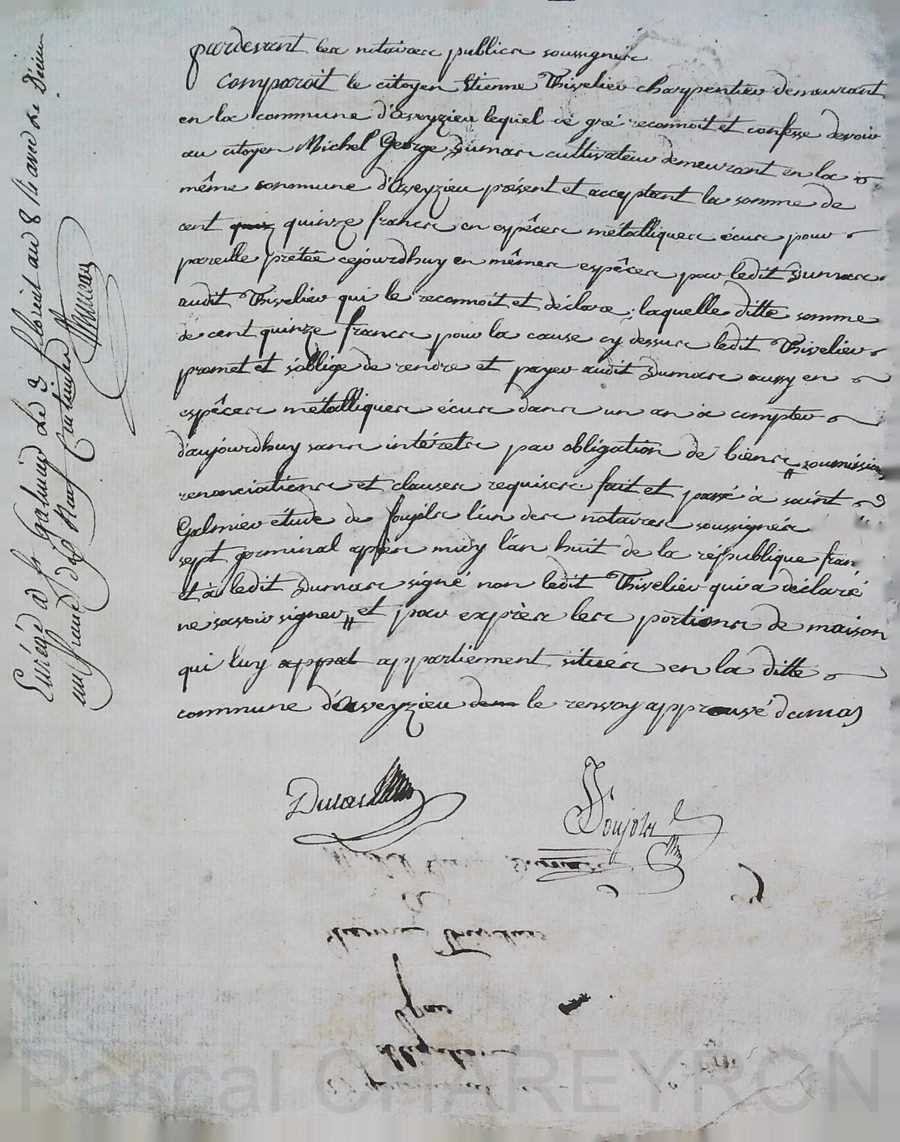 pardevant les notaires publics soussignés
comparoit le citoyen Etienne Thivelier charpentier demeurant
en la commune d'aveyzieu lequel de gré reconnoit et confesse devoir
au citoyen Michel George Dumas cultivateur demeurant en la
même commune d'aveyzieu présent et acceptant la somme de
cent quinze francs en espèces métalliques écus pour
pareille prêtée cejourdhuy en mêmes espèces par ledit Dumas
audit Thivelier qui le reconnoit et déclare; laquelle ditte somme
de cent quinze francs pour la cause cy dessus ledit Thivelier
promet et soblige de rendre et payer audit Dumas aussy en
espèces métalliques écus dans un an à compter
daujourdhuy sans intérêts par obligation de biens soumissions
renonciations et clauses requises fait et passé à saint
Galmier étude de poujols l'un des notaires soussignés
sept germinal après midy l'an huit de la république fran
et à ledit Dumas signé non ledit Thivelier qui a déclaré
ne savoir signer et par exprès les portions de maison
qui luy appat appartiennent situés en la ditte
commune d'aveyzieu le renvoy approuvé dumas
Dumas
Poujols
Enrégé à St Galmier le 3 floreal an 8
un franc
Pascal CHAREYRON